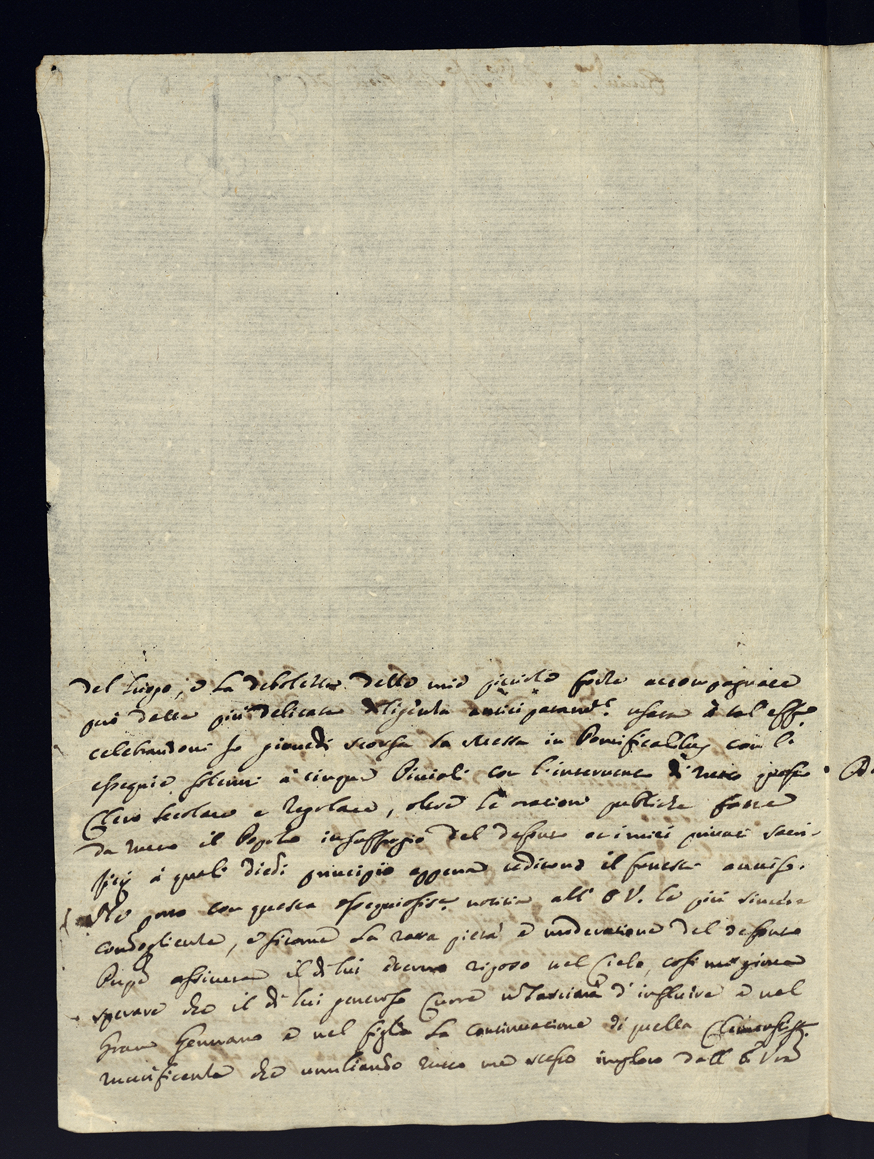 del luogo, e la debolezza delle mie picciole forze accompagnate
però dalla più delicata diligenza usata à tal effo
celebrandosi jo giovedì scorso la Messa in Pontificalibus con le
essequie solenni a cinque Pivioli con l'intervento di tutto questo
Clero secolare e regolare, oltre le orazioni publiche fatte
da tutto il Popolo in suffragio del defonto, e i miei privati sacri-
ficj à quali diedi principio appena udito il funesto avviso.
Ne porto con questa ossequiosiss. notizia all' E V. le più sincere
condoglianze, e siccome la rara pietà e moderazione del defonto
assicura il di lui eterno riposo nel Cielo, così mi giova
sperare che il di lui generoso Cuore non lascierà d'influire e nel
Gran Germano e nel figlio la continuazione di quella Clementiss.
munificenza che umiliando tutto me stesso imploro dall' E Vra